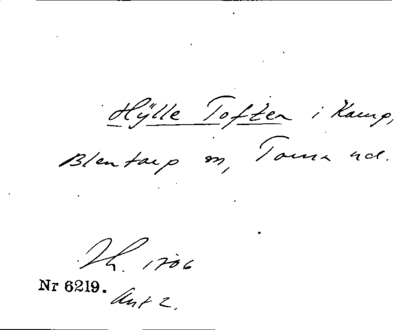 Hÿlle Toften i Kamp,
Blentarp sn, Torna hd.
Jb. 1706
Nr 6219.
Ant 2.